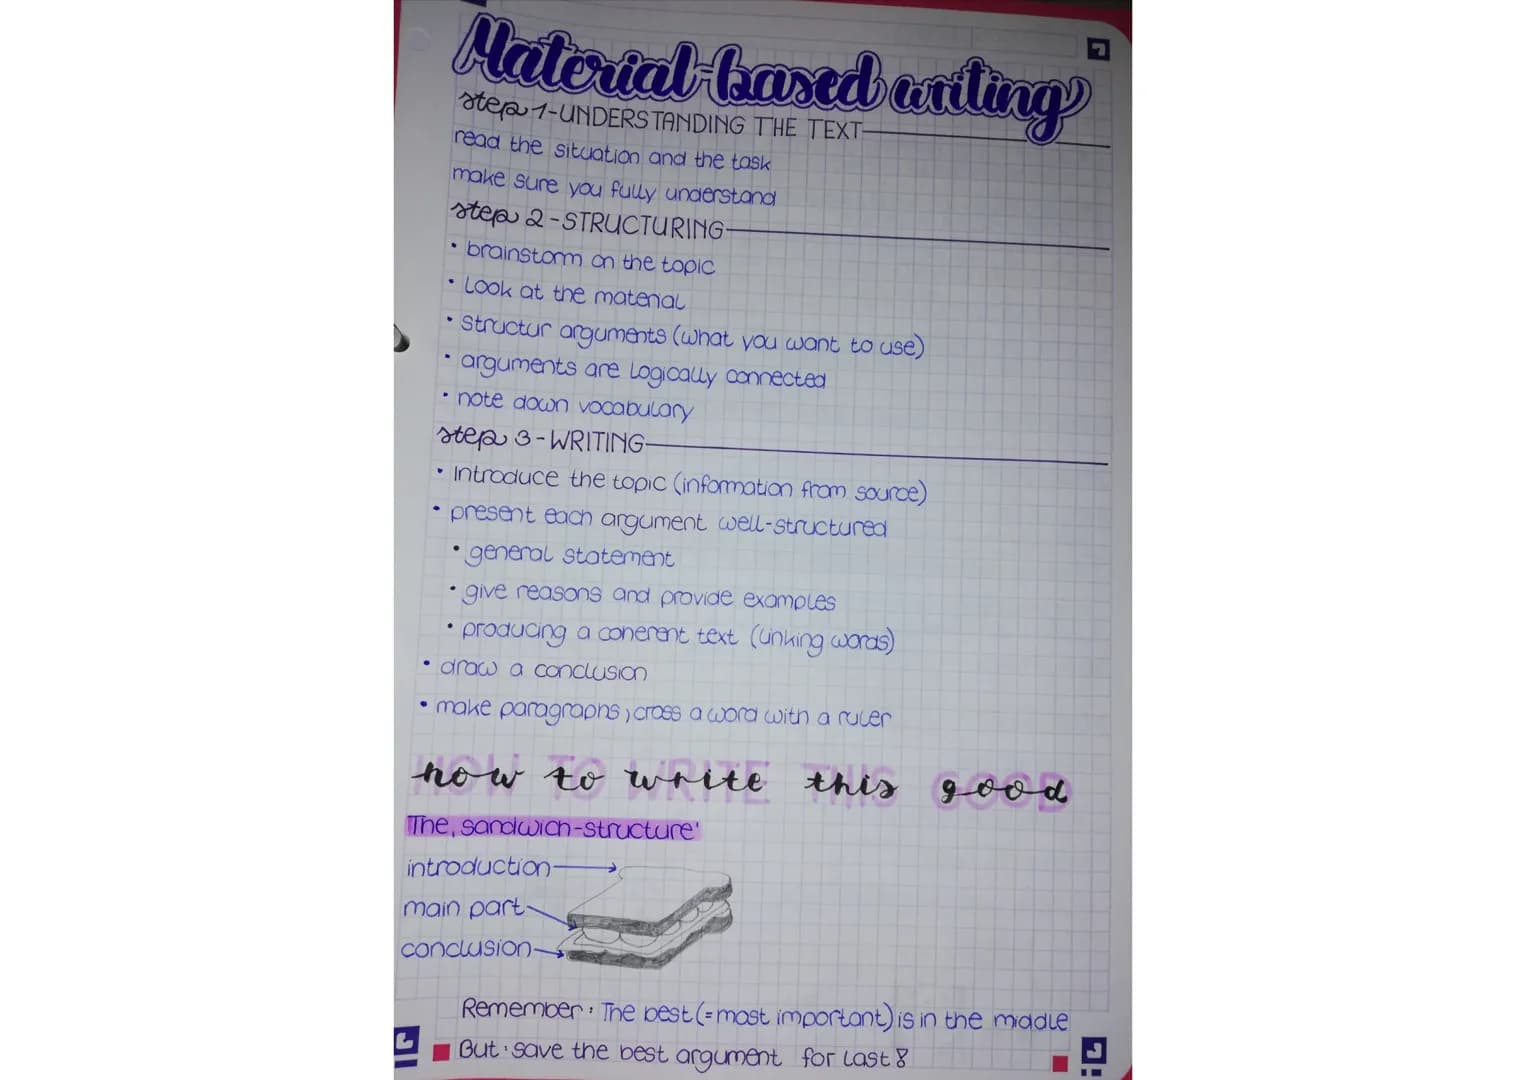 Material-based writing
step 1-UNDERSTANDING THE TEXT
read the situation and the task
make sure you fully understand
step 2-STRUCTURING
• brainstorm on the topic
• Look at the material
• structur arguments (what you want to use)
• arguments are logically connected
• note down vocabulary
step 3-WRITING
• Introduce the topic (information from source)
• present each argument well-structured
• general statement
• give reasons and provide examples
• producing a coherent text (linking words)
• draw a conclusion
• make paragraphs, cross a word with a ruler
HOW TO WRITE THIS GOOD
how to write this good
The ‚sandwich-structure'
introduction
main part
conclusion
Remember: The best (=most important) is in the middle
But: save the best argument for last!